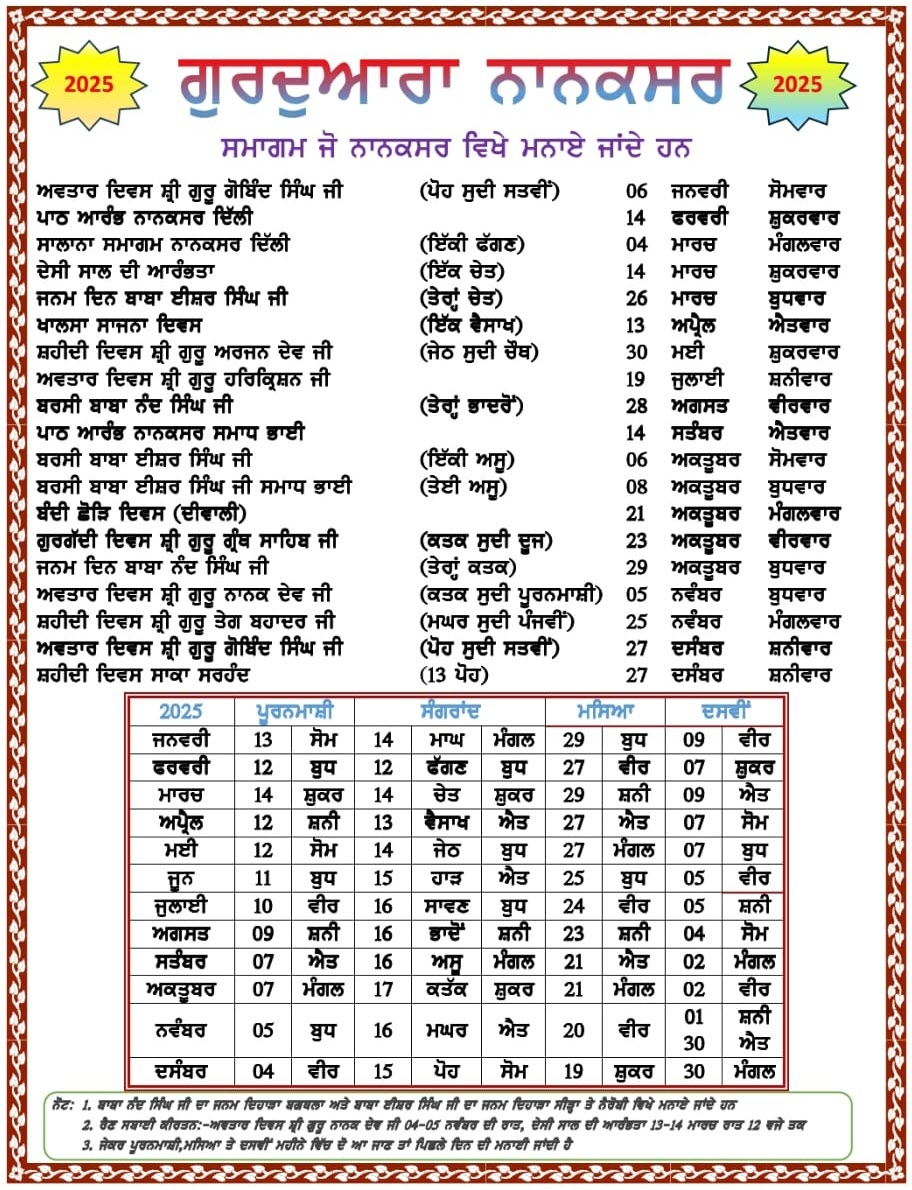 2025 ਗੁਰਦੁਆਰਾ ਨਾਨਕਸਰ 2025
ਸਮਾਗਮ ਜੋ ਨਾਨਕਸਰ ਵਿਖੇ ਮਨਾਏ ਜਾਂਦੇ ਹਨ
ਅਵਤਾਰ ਦਿਵਸ ਸ਼੍ਰੀ ਗੁਰੂ ਗੋਬਿੰਦ ਸਿੰਘ ਜੀ (ਪੋਹ ਸੁਦੀ ਸਤਵੀਂ) 06 ਜਨਵਰੀ ਸੋਮਵਾਰ
ਪਾਠ ਆਰੰਭ ਨਾਨਕਸਰ ਦਿੱਲੀ 14 ਫਰਵਰੀ ਸ਼ੁਕਰਵਾਰ
ਸਾਲਾਨਾ ਸਮਾਗਮ ਨਾਨਕਸਰ ਦਿੱਲੀ (ਇੱਕੀ ਫੱਗਣ) 04 ਮਾਰਚ ਮੰਗਲਵਾਰ
ਦੇਸੀ ਸਾਲ ਦੀ ਆਰੰਭਤਾ (ਇੱਕ ਚੇਤ) 14 ਮਾਰਚ ਸ਼ੁਕਰਵਾਰ
ਜਨਮ ਦਿਨ ਬਾਬਾ ਈਸ਼ਰ ਸਿੰਘ ਜੀ (ਤੇਰ੍ਹਾਂ ਚੇਤ) 26 ਮਾਰਚ ਬੁਧਵਾਰ
ਖਾਲਸਾ ਸਾਜਨਾ ਦਿਵਸ (ਇੱਕ ਵੈਸਾਖ) 13 ਅਪ੍ਰੈਲ ਐਤਵਾਰ
ਸ਼ਹੀਦੀ ਦਿਵਸ ਸ਼੍ਰੀ ਗੁਰੂ ਅਰਜਨ ਦੇਵ ਜੀ (ਜੇਠ ਸੁਦੀ ਚੌਥ) 30 ਮਈ ਸ਼ੁਕਰਵਾਰ
ਅਵਤਾਰ ਦਿਵਸ ਸ਼੍ਰੀ ਗੁਰੂ ਹਰਿਕ੍ਰਿਸ਼ਨ ਜੀ 19 ਜੁਲਾਈ ਸ਼ਨੀਵਾਰ
ਬਰਸੀ ਬਾਬਾ ਨੰਦ ਸਿੰਘ ਜੀ (ਤੇਰ੍ਹਾਂ ਭਾਦਰੋਂ) 28 ਅਗਸਤ ਵੀਰਵਾਰ
ਪਾਠ ਆਰੰਭ ਨਾਨਕਸਰ ਸਮਾਧ ਭਾਈ 14 ਸਤੰਬਰ ਐਤਵਾਰ
ਬਰਸੀ ਬਾਬਾ ਈਸ਼ਰ ਸਿੰਘ ਜੀ (ਇੱਕੀ ਅਸੂ) 06 ਅਕਤੂਬਰ ਸੋਮਵਾਰ
ਬਰਸੀ ਬਾਬਾ ਈਸ਼ਰ ਸਿੰਘ ਜੀ ਸਮਾਧ ਭਾਈ (ਤੇਈ ਅਸੂ) 08 ਅਕਤੂਬਰ ਬੁਧਵਾਰ
ਬੰਦੀ ਛੋੜਿ ਦਿਵਸ (ਦੀਵਾਲੀ) 21 ਅਕਤੂਬਰ ਮੰਗਲਵਾਰ
ਗੁਰਗੱਦੀ ਦਿਵਸ ਸ਼੍ਰੀ ਗੁਰੂ ਗ੍ਰੰਥ ਸਾਹਿਬ ਜੀ (ਕਤਕ ਸੁਦੀ ਦੂਜ) 23 ਅਕਤੂਬਰ ਵੀਰਵਾਰ
ਜਨਮ ਦਿਨ ਬਾਬਾ ਨੰਦ ਸਿੰਘ ਜੀ (ਤੇਰ੍ਹਾਂ ਕਤਕ) 29 ਅਕਤੂਬਰ ਬੁਧਵਾਰ
ਅਵਤਾਰ ਦਿਵਸ ਸ਼੍ਰੀ ਗੁਰੂ ਨਾਨਕ ਦੇਵ ਜੀ (ਕਤਕ ਸੁਦੀ ਪੂਰਨਮਾਸ਼ੀ) 05 ਨਵੰਬਰ ਬੁਧਵਾਰ
ਸ਼ਹੀਦੀ ਦਿਵਸ ਸ਼੍ਰੀ ਗੁਰੂ ਤੇਗ ਬਹਾਦਰ ਜੀ (ਮਘਰ ਸੁਦੀ ਪੰਜਵੀਂ) 25 ਨਵੰਬਰ ਮੰਗਲਵਾਰ
ਅਵਤਾਰ ਦਿਵਸ ਸ਼੍ਰੀ ਗੁਰੂ ਗੋਬਿੰਦ ਸਿੰਘ ਜੀ (ਪੋਹ ਸੁਦੀ ਸਤਵੀਂ) 27 ਦਸੰਬਰ ਸ਼ਨੀਵਾਰ
ਸ਼ਹੀਦੀ ਦਿਵਸ ਸਾਕਾ ਸਰਹੰਦ (13 ਪੋਹ) 27 ਦਸੰਬਰ ਸ਼ਨੀਵਾਰ
2025 ਪੂਰਨਮਾਸ਼ੀ ਸੰਗਰਾਂਦ ਮਸਿਆ ਦਸਵੀਂ
ਜਨਵਰੀ 13 ਸੋਮ 14 ਮਾਘ ਮੰਗਲ 29 ਬੁਧ 09 ਵੀਰ
ਫਰਵਰੀ 12 ਬੁਧ 12 ਫੱਗਣ ਬੁਧ 27 ਵੀਰ 07 ਸ਼ੁਕਰ
ਮਾਰਚ 14 ਸ਼ੁਕਰ 14 ਚੇਤ ਸ਼ੁਕਰ 29 ਸ਼ਨੀ 09 ਐਤ
ਅਪ੍ਰੈਲ 12 ਸ਼ਨੀ 13 ਵੈਸਾਖ ਐਤ 27 ਐਤ 07 ਸੋਮ
ਮਈ 12 ਸੋਮ 14 ਜੇਠ ਬੁਧ 27 ਮੰਗਲ 07 ਬੁਧ
ਜੂਨ 11 ਬੁਧ 15 ਹਾੜ ਐਤ 25 ਬੁਧ 05 ਵੀਰ
ਜੁਲਾਈ 10 ਵੀਰ 16 ਸਾਵਣ ਬੁਧ 24 ਵੀਰ 05 ਸ਼ਨੀ
ਅਗਸਤ 09 ਸ਼ਨੀ 16 ਭਾਦੋਂ ਸ਼ਨੀ 23 ਸ਼ਨੀ 04 ਸੋਮ
ਸਤੰਬਰ 07 ਐਤ 16 ਅਸੂ ਮੰਗਲ 21 ਐਤ 02 ਮੰਗਲ
ਅਕਤੂਬਰ 07 ਮੰਗਲ 17 ਕਤੱਕ ਸ਼ੁਕਰ 21 ਮੰਗਲ 02 ਵੀਰ
ਨਵੰਬਰ 05 ਬੁਧ 16 ਮਘਰ ਐਤ 20 ਵੀਰ 01 ਸ਼ਨੀ
30 ਐਤ
ਦਸੰਬਰ 04 ਵੀਰ 15 ਪੋਹ ਸੋਮ 19 ਸ਼ੁਕਰ 30 ਮੰਗਲ
ਨੋਟ: 1. ਬਾਬਾ ਨੰਦ ਸਿੰਘ ਜੀ ਦਾ ਜਨਮ ਦਿਹਾੜਾ ਬਗਥਲਾ ਅਤੇ ਬਾਬਾ ਈਸ਼ਰ ਸਿੰਘ ਜੀ ਦਾ ਜਨਮ ਦਿਹਾੜਾ ਸੀੜ੍ਹਾ ਤੇ ਨੈਰੋਬੀ ਵਿਖੇ ਮਨਾਏ ਜਾਂਦੇ ਹਨ
2. ਰੈਣ ਸਬਾਈ ਕੀਰਤਨ:-ਅਵਤਾਰ ਦਿਵਸ ਸ਼੍ਰੀ ਗੁਰੂ ਨਾਨਕ ਦੇਵ ਜੀ 04-05 ਨਵੰਬਰ ਦੀ ਰਾਤ, ਦੇਸੀ ਸਾਲ ਦੀ ਆਰੰਭਤਾ 13-14 ਮਾਰਚ ਰਾਤ 12 ਵਜੇ ਤਕ
3. ਜੇਕਰ ਪੂਰਨਮਾਸ਼ੀ,ਮਸਿਆ ਤੇ ਦਸਵੀਂ ਮਹੀਨੇ ਵਿੱਚ ਦੋ ਆ ਜਾਣ ਤਾਂ ਪਿਛਲੇ ਦਿਨ ਦੀ ਮਨਾਈ ਜਾਂਦੀ ਹੈ